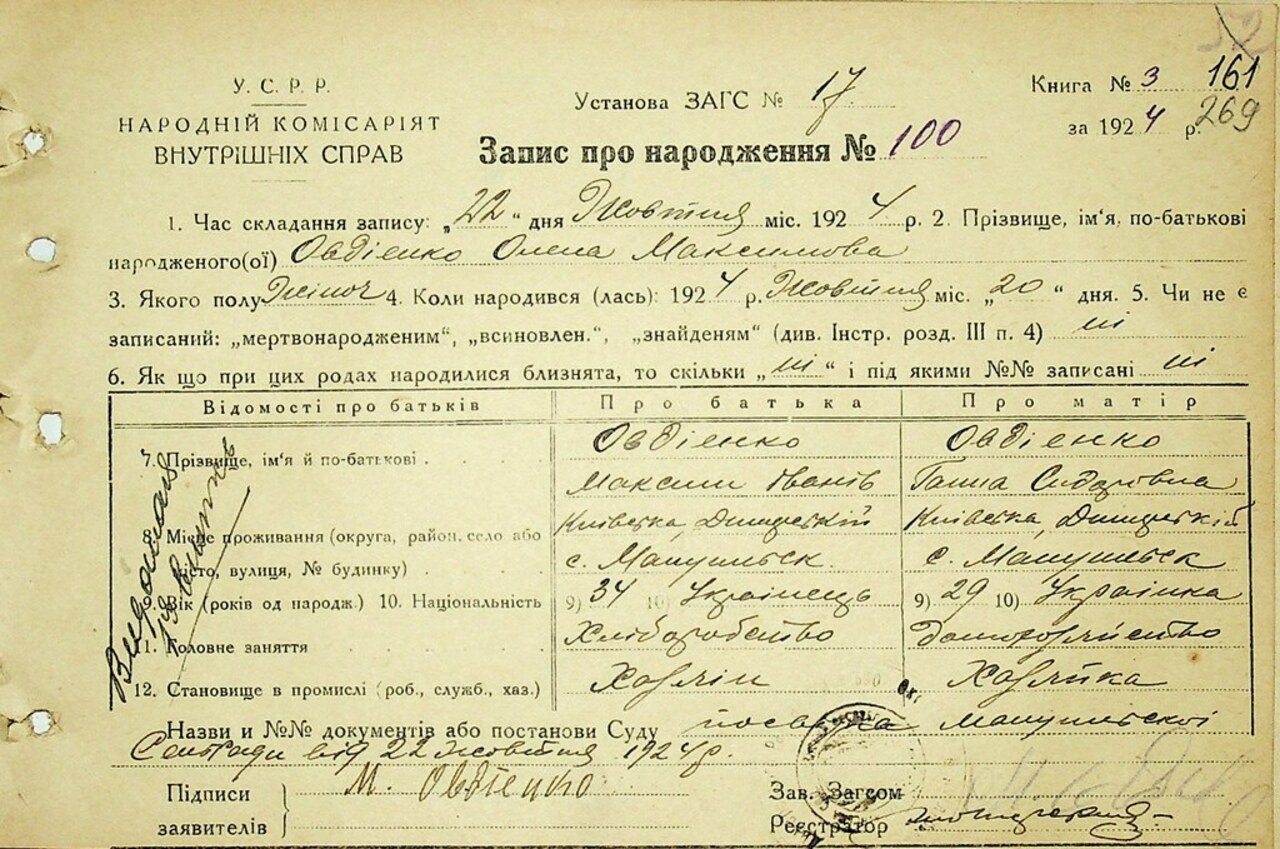 У. С. Р. Р.
НАРОДНІЙ КОМІСАРІЯТ
ВНУТРІШНІХ СПРАВ
Установа ЗАГС № 17
Книга № 3 161
за 1924 р. 269
Запис про народження № 100
1. Час складання запису: „22" дня Жовтня міс. 1924 р. 2. Прізвище, ім'я, по-батькові
народженого(ої) Овдієнко Олена Максимова
3. Якого полу Жіноч 4. Коли народився (лась): 1924 р. Жовтня міс. „20" дня. 5. Чи не є
записаний: „мертвонародженим", „всиновлен.", „знайденям" (див. Інстр. розд. III п. 4) ні
6. Як що при цих родах народилися близнята, то скільки „ні" і під якими №№ записані ні
Відомості про батьків Про батька Про матір
7. Прізвище, ім'я й по-батькові Овдієнко Овдієнко
Максим Іванів Ганна Сидорівна
8. Місце проживання (округа, район, село або Київська, Київська,
місто, вулиця, № будинку) с. с.
9. Вік (років од народж.) 10. Національність 9) 34 10) Українець 9) 29 10) Українка
11. Головне заняття Хліборобство Домохазяйство
12. Становище в промислі (роб., служб., хаз.) Хазяїн Хазяйка
Назви и №№ документів або постанови Суду
Сельради від 22 жовтня 1924 р.
Підписи М. Овдієнко Зав. Загсом
заявителів Реєстратор